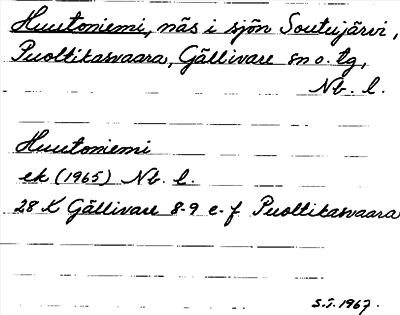 Huutoniemi, näs i sjön Soutujärvi,
Puoltikasvaara, Gällivare sn o. tg,
Nb. l.
Huutoniemi
ek (1965) Nb. l.
28 K Gällivare 8-9 e-f Puoltikasvaara
S.S. 1967.